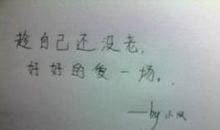 趁自己还没老，
好好的爱一场。
——by 小